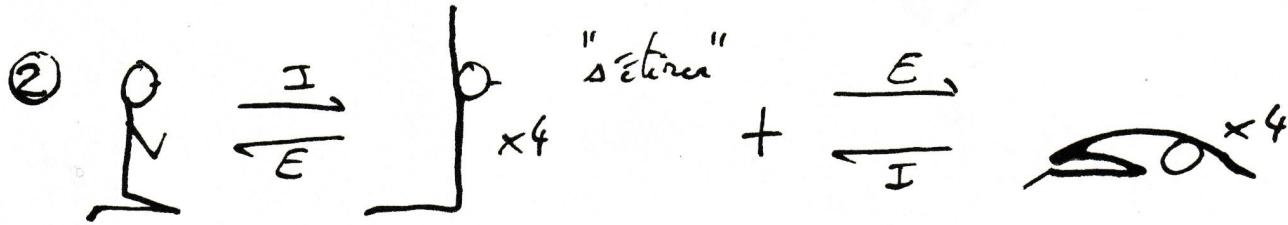 ② I E ×4 "s'étirer" + E I ×4